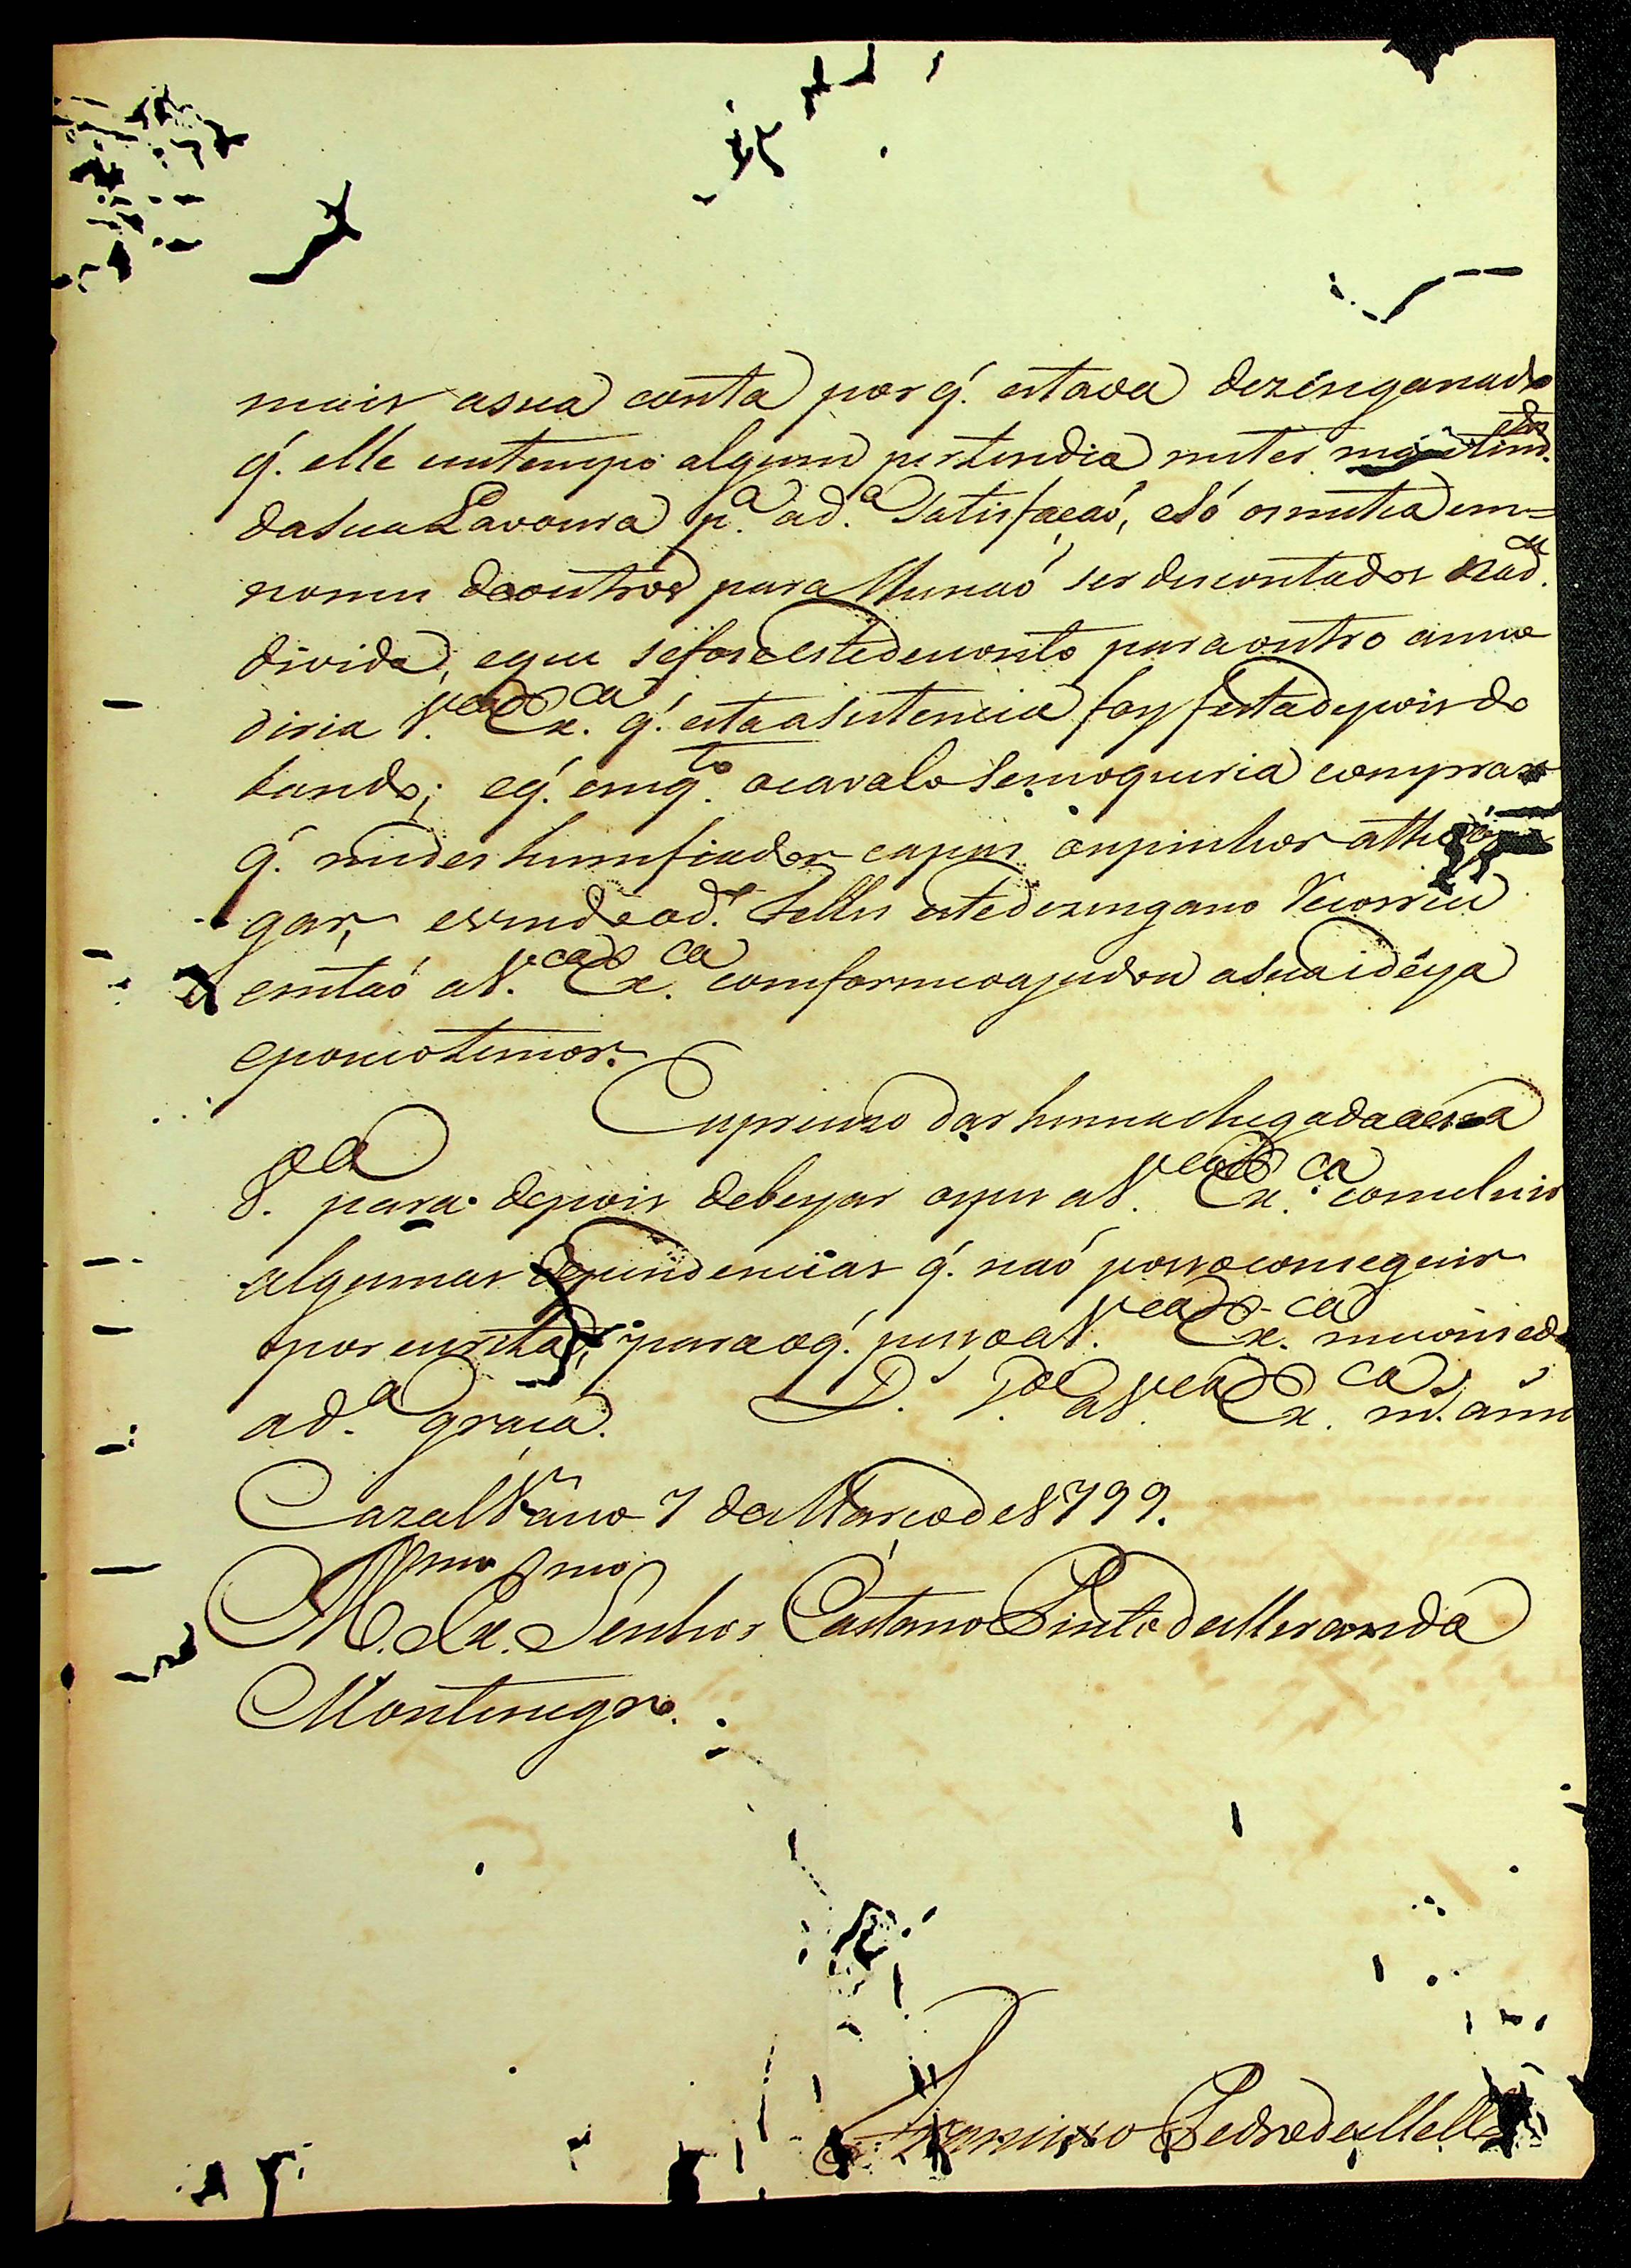 mais asua conta por q̃. estava dezenganado
q̃. elle emtempo algum pertendia meter
dasua Lavoura p.ª ad.ª satisfação, eSó ometia em=
nomes deoutros para lhenaó ser descontados
divida, eque sefosse estedesconto paraoutro anno
diria V. Ex.ca q̃. esta asistencia foy feita depois do
bando; eq̃. emq.to acavalo Semoqueria comprar
q̃. medes hum fiador capas oupinhor athe
gar, evendo od.º Telles estedezengano Recorreu
emtaó aV. Ex.ca comforme oajudou asua idéya
epoucotemor.
Eupreciso dar huma chegada aessa
V.ª para depois debeyjar ospes aV. Ex.ca concluir
algumas dependencias q̃. naó possoconseguir
por escrita, paraoq̃. pesso aV. Ex.ca meconceda
ad.ª graça. D.s g.de aV. Ex.ca m.s ann
CazalVasco 7 deMarco de 1799.
Ill.mo Ex.mo Senhor Caetano Pinto deMiranda
Montenegro.
Francisco Pedro deMello